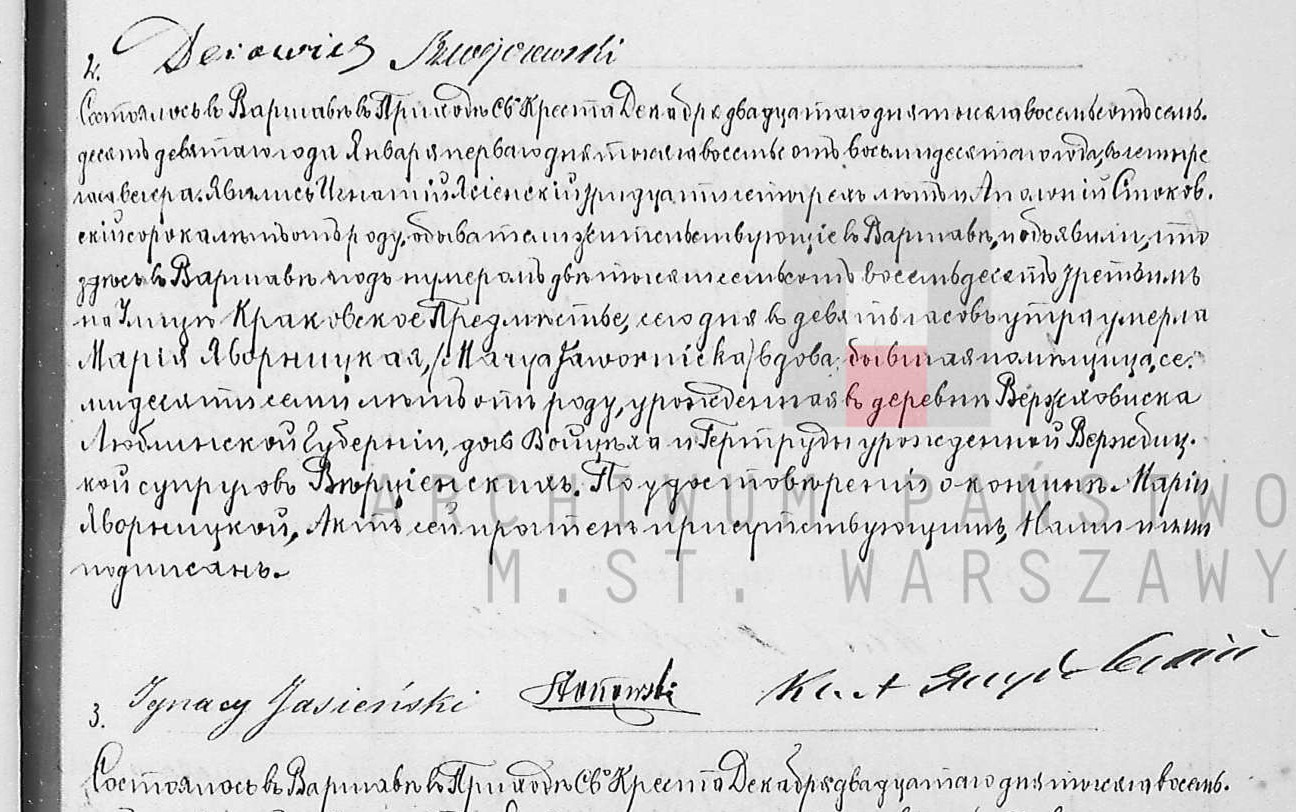 2.
Состоялось въ Варшавѣ въ Приходѣ Св. Креста Декабря двадцатаго дня тысяча восемьсотъ семь-
десятъ девятаго года Января перваго дня тысяча восемьсотъ восьмидесятаго года, въ четыре
часа вечера. Явились Игнатій Ясіенскій тридцати четырехъ лѣтъ и Аполоній Стоков-
скій сорока лѣтъ отъ роду, обыватели жительствующіе въ Варшавѣ, и объявили, что
здѣсь въ Варшавѣ подъ нумеромъ двѣ тысячи семьсотъ восемьдесятъ третьимъ
на Улицѣ Краковское Предмѣстье, сего дня въ девять часовъ утра умерла
Марія Яворницкая, /Marya Jawornicka/ вдова, бывшая помѣщица, се-
мидесяти семи лѣтъ отъ роду, урожденная въ деревнѣ
Люблинской Губерніи, дочь Войцѣха и Гертруды урожденной Вержбиц-
кой супруговъ. По удостовѣреніи о кончинѣ Маріи
Яворницкой, Актъ сей прочтенъ присутствующимъ, Нами и ими
подписанъ.
ARCHIWUM PAŃSTWO
M.ST. WARSZAWY
Ignacy Jasieński Stokowski
3.
Состоялось въ Варшавѣ въ Приходѣ Св. Креста Декабря двадцатаго дня тысяча восемь-